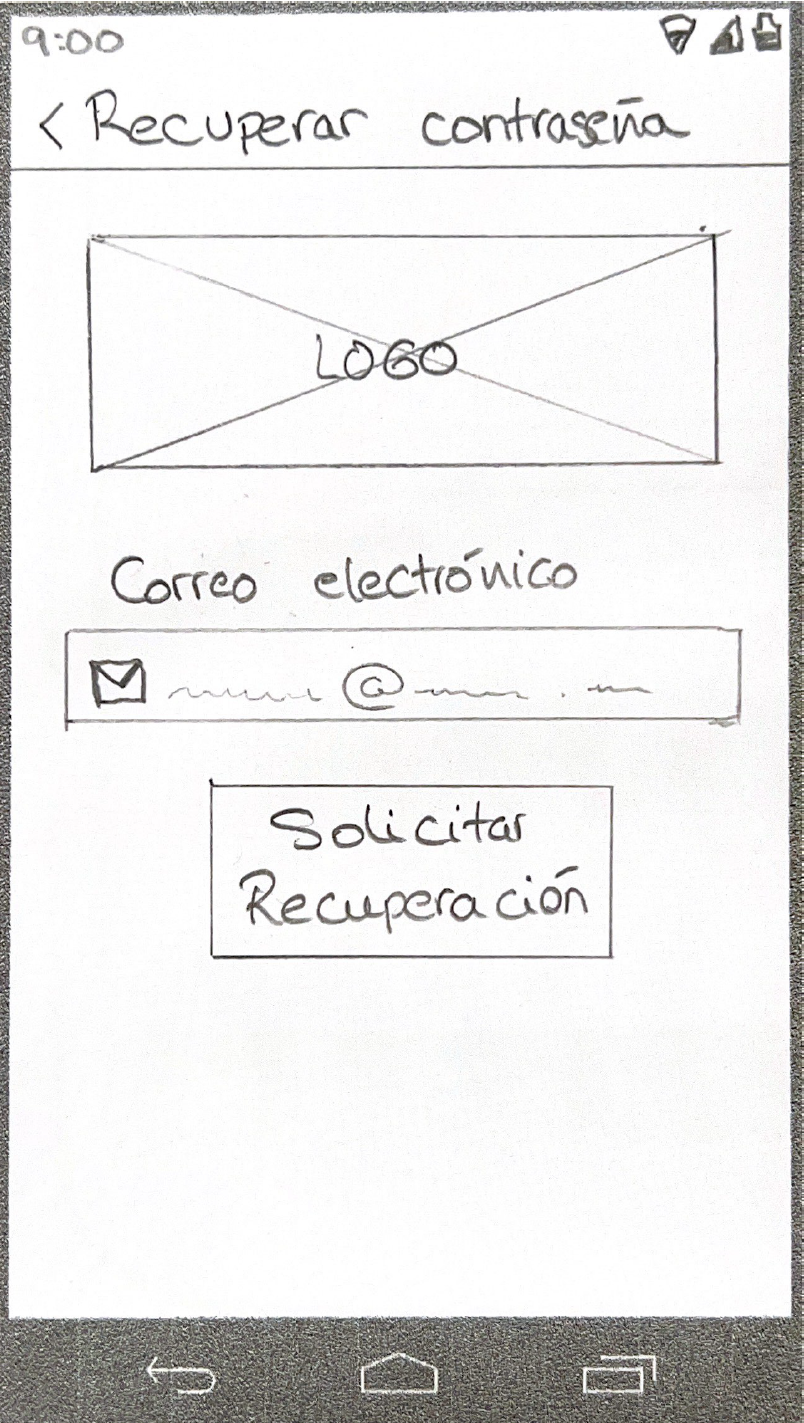 9:00
< Recuperar contraseña
LOGO
Correo electrónico
@
Solicitar
Recuperación